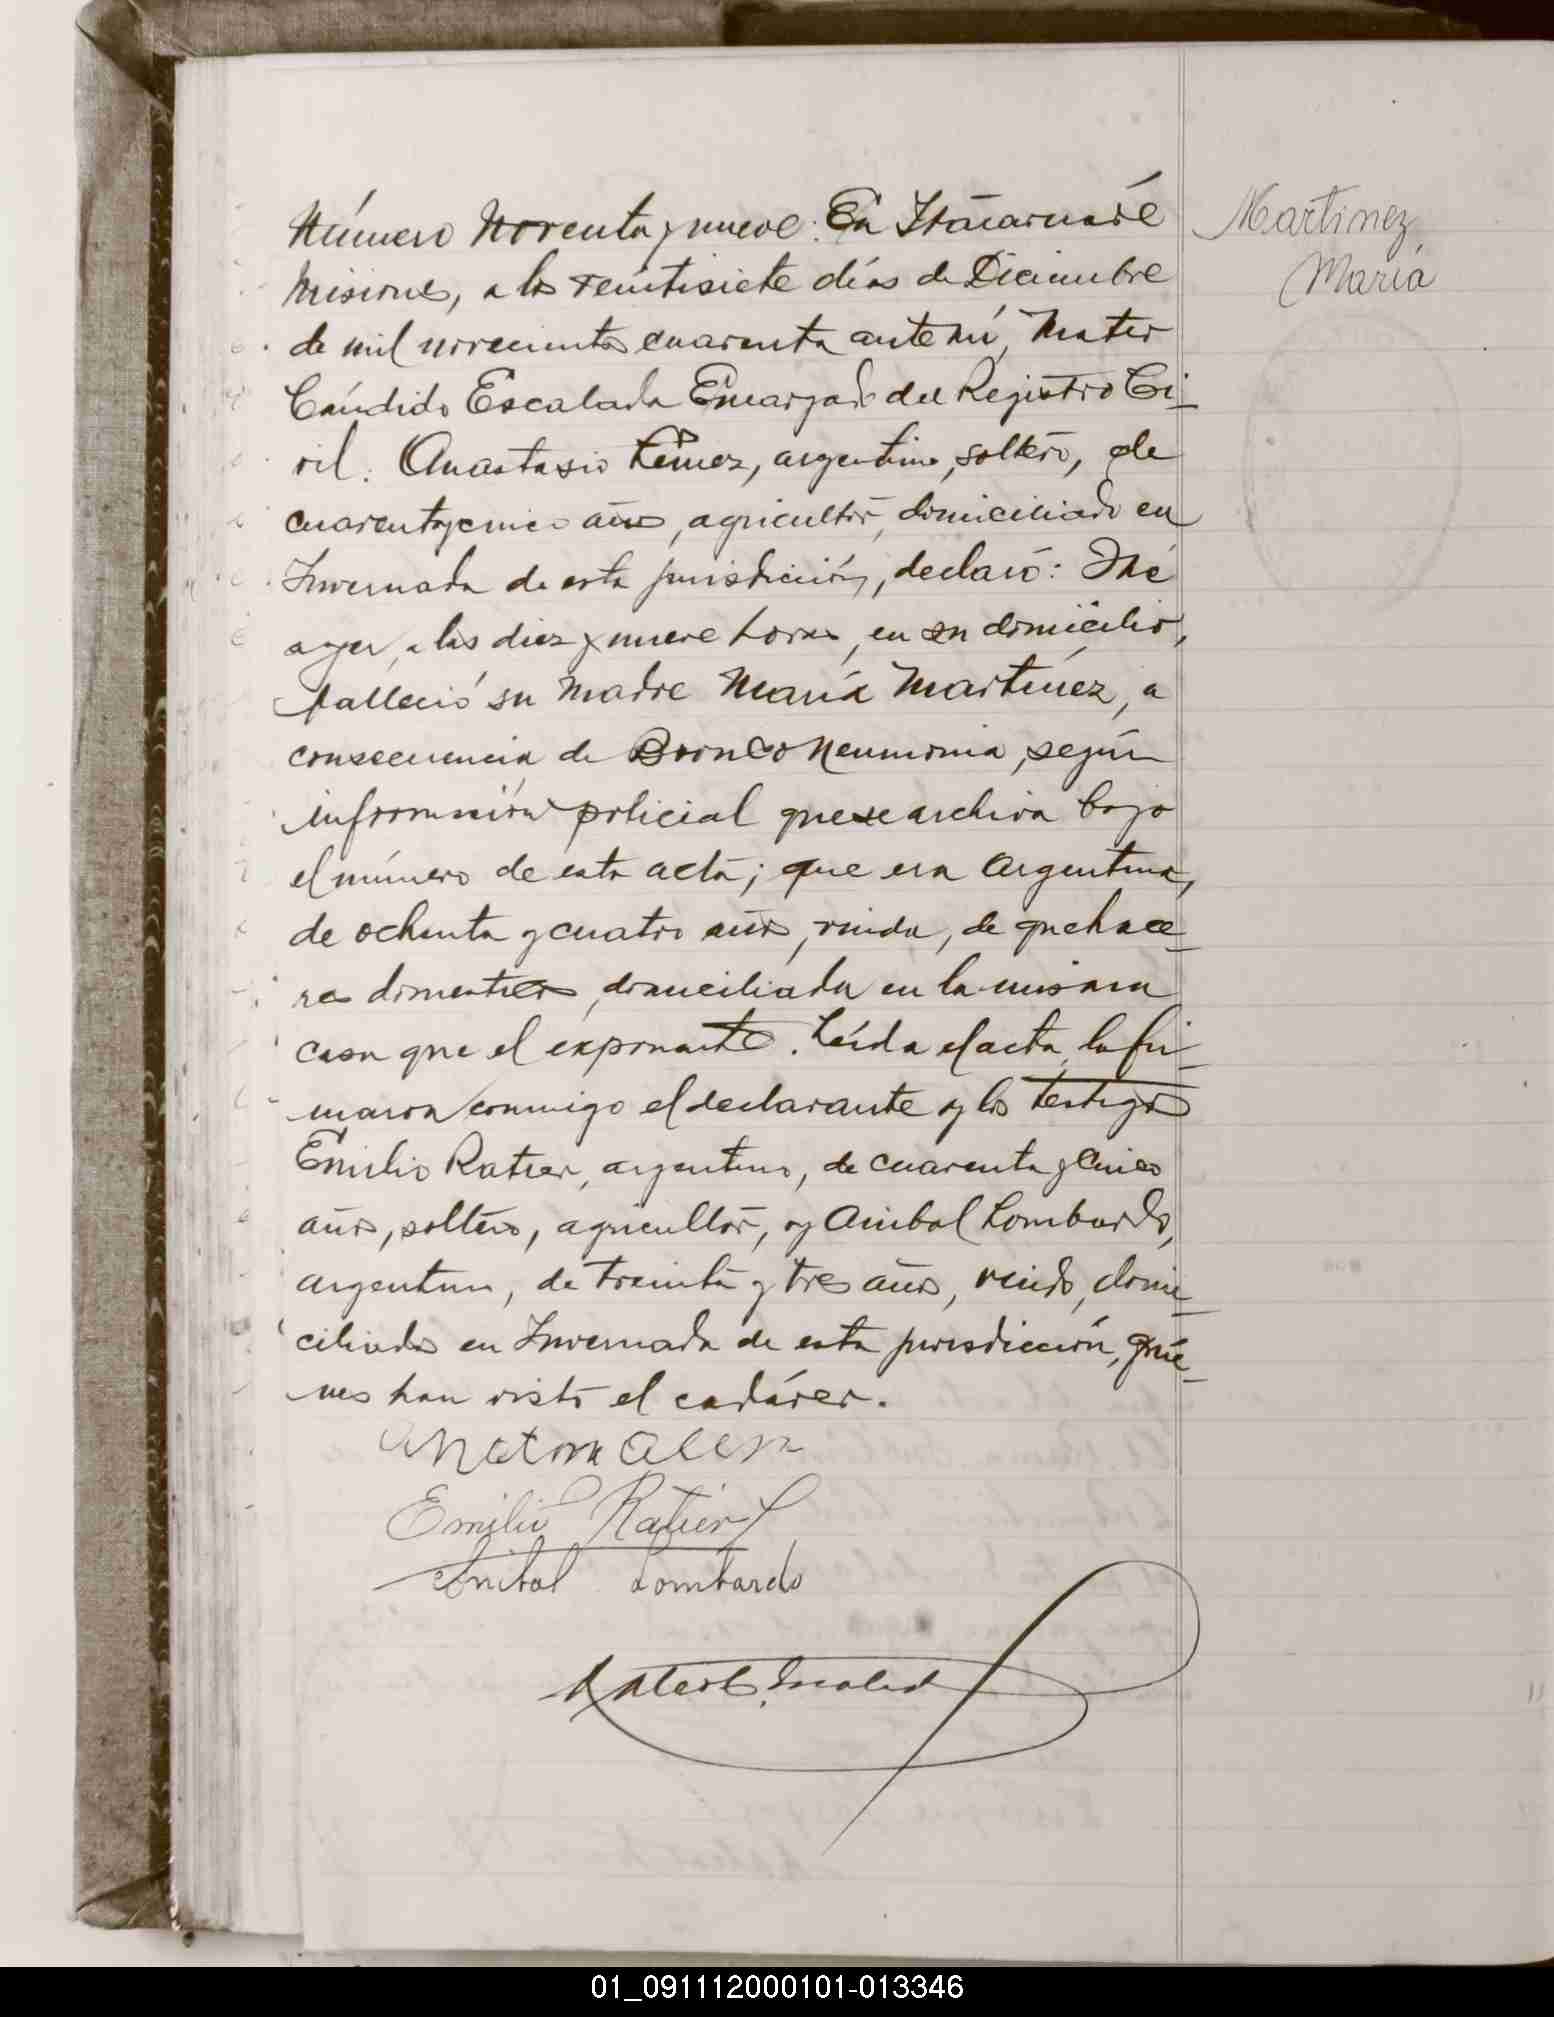 Número Noventa y nueve. En Itacaruaré
Misiones, a los veintisiete días de Diciembre
de mil novecientos cuarenta ante mí, Mateo
Cándido Escalada Encargado del Registro Ci-
vil: Anastasio argentino, soltero, de
cuarentaycinco años, agricultor, domiciliado en
Invernada de esta jurisdicción, declaró: Que
ayer, a las diez y nueve horas, en su domicilio,
falleció su madre María Martínez, a
consecuencia de Bronco Neumonia, según
información policial que se archiva bajo
el número de esta acta; que era Argentina,
de ochenta y cuatro años, viuda, de quehace-
res domesticos, domiciliada en la misma
casa que el exponente. Leída el acta, la fir-
maron conmigo el declarante y los testigos
Emilio Ratier, argentino, de cuarenta y cinco
años, soltero, agricultor, y Anibal Lombardo,
argentino, de treinta y tres años, viudo, domi-
ciliados en Invernada de esta jurisdicción, quie-
nes han visto el cadáver.
Emilio Ratier
Anibal Lombardo
Mateo C. Escalada
Martinez
María
01_091112000101-013346